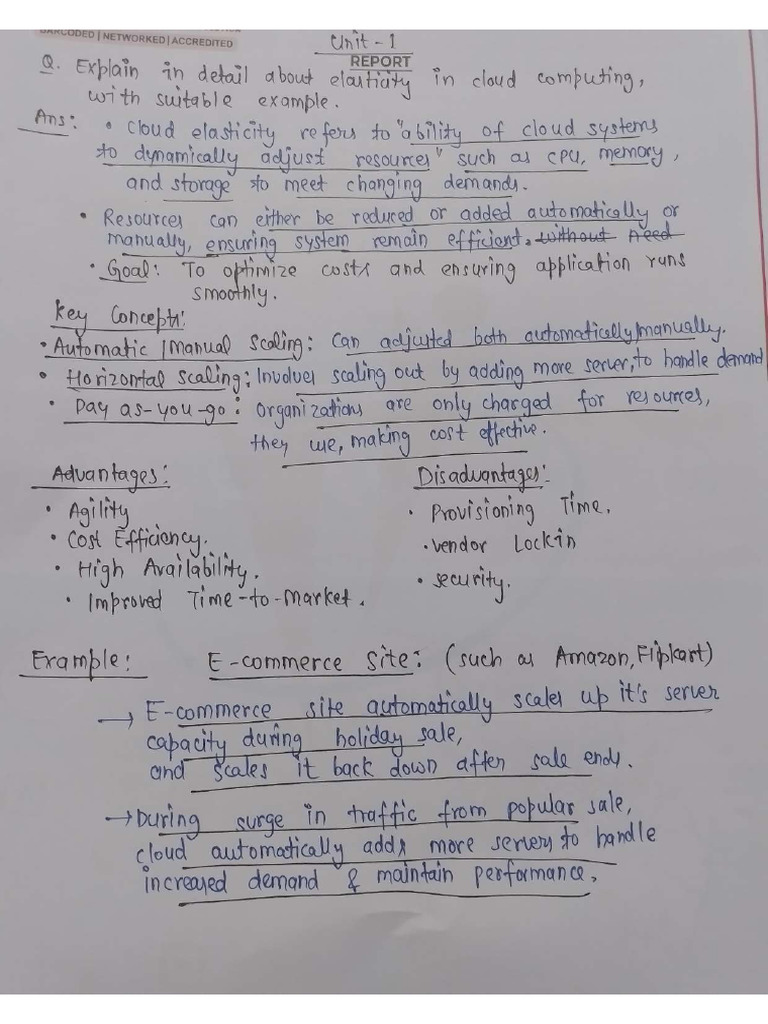 BARCODED | NETWORKED | ACCREDITED
Unit - 1
REPORT
Q. Explain in detail about elasticity in cloud computing,
with suitable example.
Ans: • Cloud elasticity refers to "ability of cloud systems
to dynamically adjust resources" such as CPU, memory,
and storage to meet changing demands.
• Resources can either be reduced or added automatically or
manually, ensuring system remain efficient. without need
• Goal: To optimize costs and ensuring application runs
smoothly.
Key Concepts:
• Automatic / Manual Scaling: Can adjusted both automatically/manually.
• Horizontal Scaling: Involves scaling out by adding more server, to handle demand
• Pay as-you-go: Organizations are only charged for resources,
they use, making cost effective.
Advantages:
• Agility
• Cost Efficiency.
• High Availability.
• Improved Time-to-Market.
Disadvantages:
• Provisioning Time.
• vendor Lockin
• security.
Example: E-commerce Site: (such as Amazon, Flipkart)
→ E-commerce site automatically scales up it's server
capacity during holiday sale,
and scales it back down after sale ends.
→ During surge in traffic from popular sale,
cloud automatically adds more servers to handle
increased demand & maintain performance.